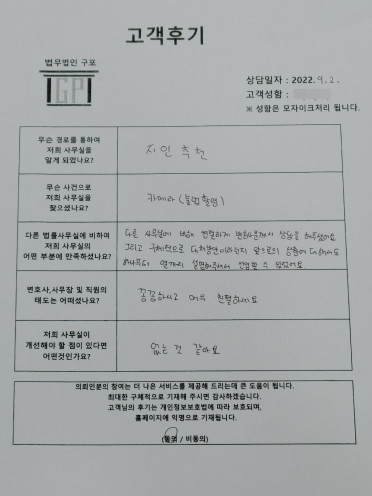 고객후기
법무법인 구포
GP
상담일자 : 2022. 9. 2.
고객성함 :
※ 성함은 모자이크처리 됩니다.
무슨 경로를 통하여
저희 사무실을
알게 되었나요?
지인 추천
무슨 사건으로
저희 사무실을
찾으셨나요?
카메라 (불법촬영)
다른 법률사무실에 비하여
저희 사무실의
어떤 부분에 만족하셨나요?
다른 사무실에 비해 친절하게 변호사분께서 상담을 해주셨어요
그리고 구체적으로 대처방안이라던지 앞으로의 상황에 대해서도
하나부터 열까지 설명해주셔서 안심할 수 있었어요
변호사,사무장 및 직원의
태도는 어떠셨나요?
꼼꼼하시고 매우 친절하세요
저희 사무실이
개선해야 할 점이 있다면
어떤것인가요?
없는 것 같아요
의뢰인분의 참여는 더 나은 서비스를 제공해 드리는데 큰 도움이 됩니다.
최대한 구체적으로 기재해 주시면 감사하겠습니다.
고객님의 후기는 개인정보보호법에 따라 보호되며,
홈페이지에 익명으로 기재됩니다.
(동의 / 비동의)